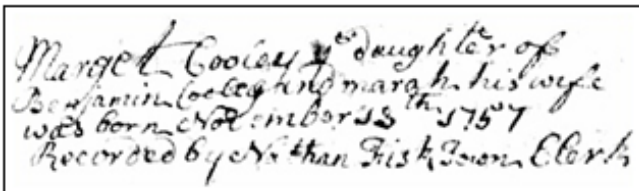 Marget Cooley ye daughter of
Benjamin Cooley and marah his wife
was born November 13th 1757
Recorded by Nathan Fisk Town Clerk